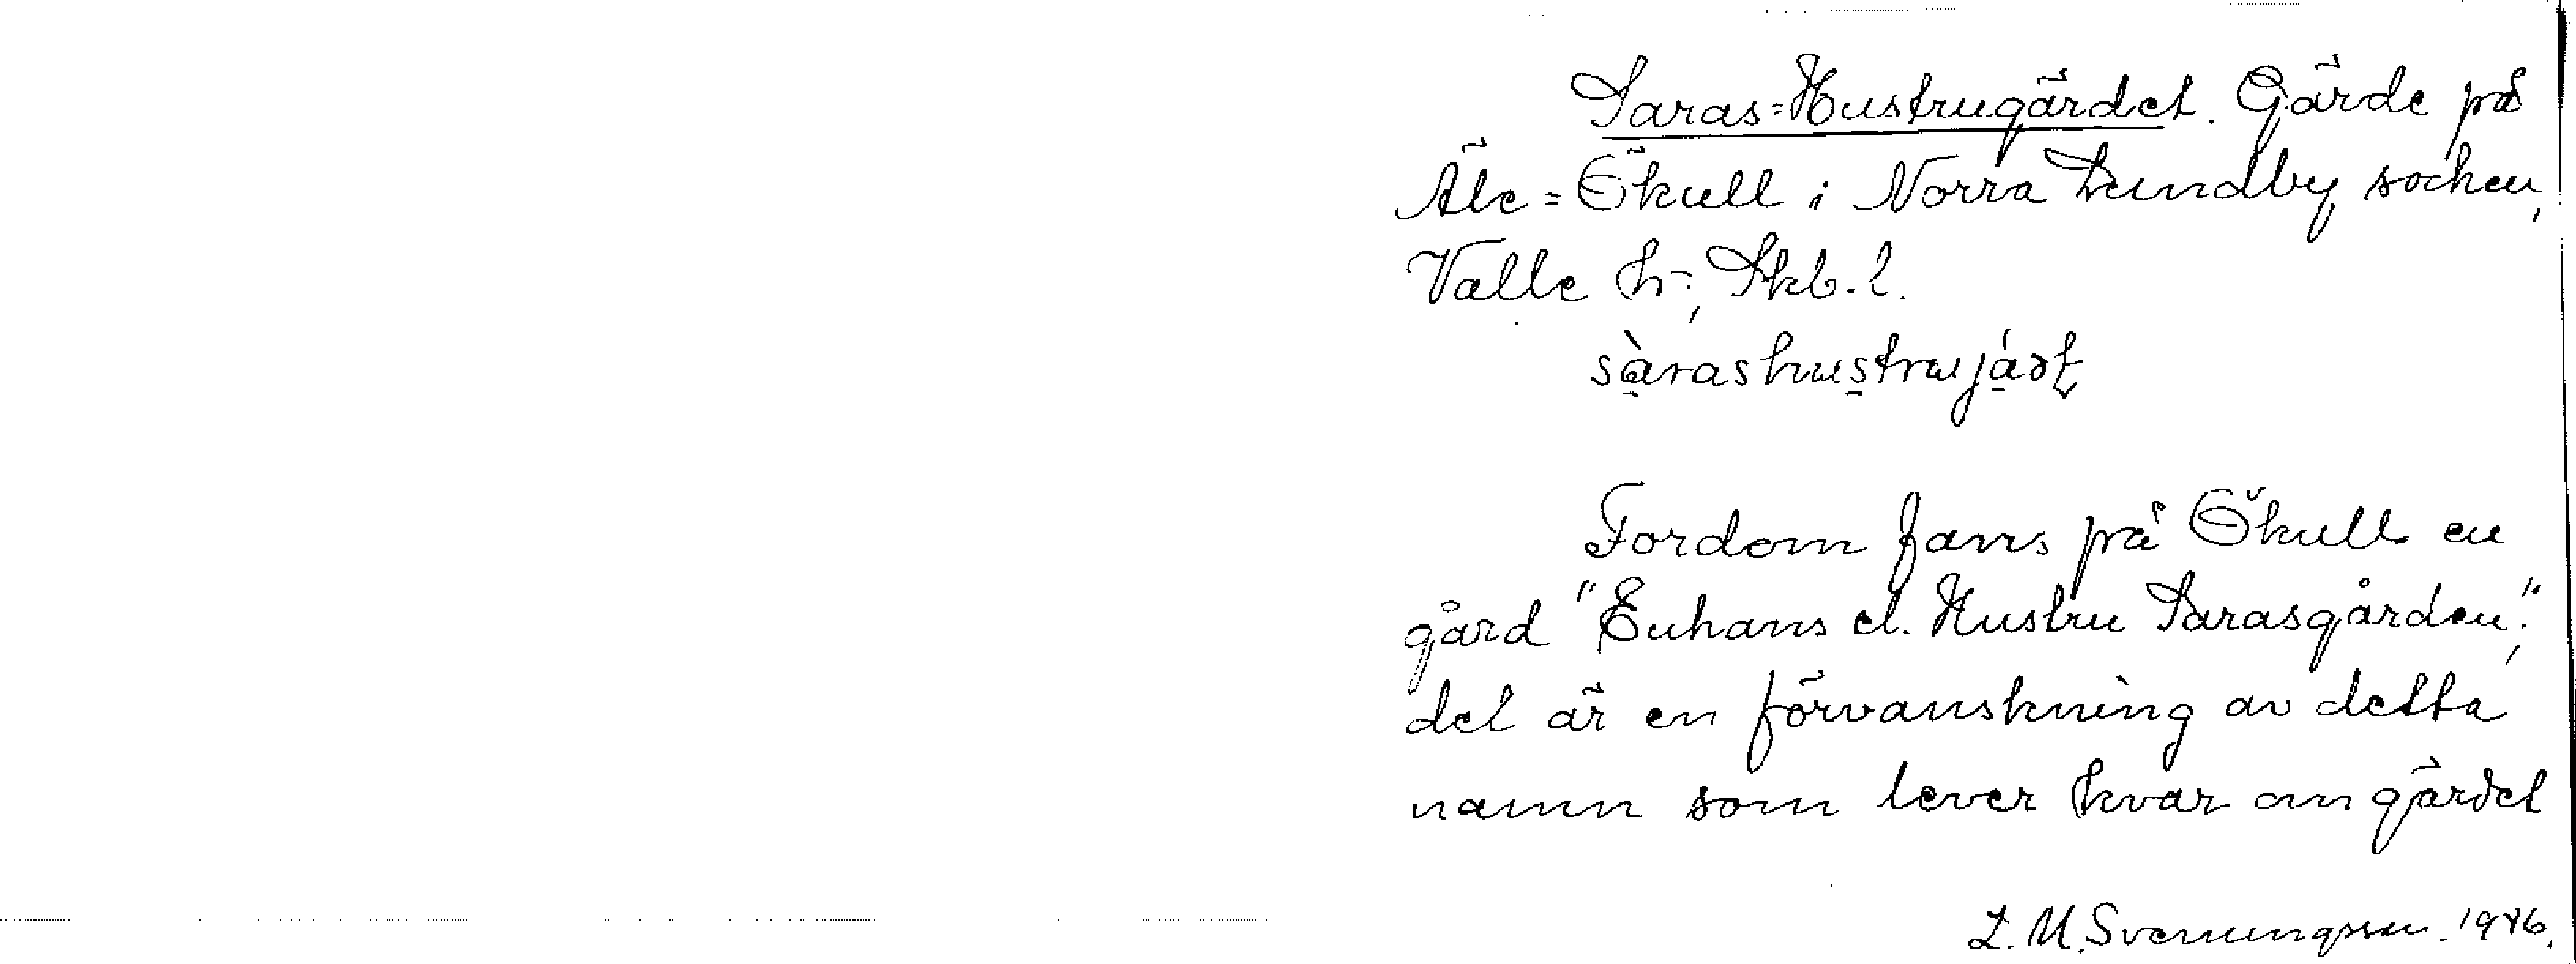 Saras-Hustrugärdet. Gärde på
Äle-Ökull i Norra Lundby socken,
Valle h., Skb. l.
sàrashustrujádt
Fordom fans på Ökull en
gård "Enhans el. Hustru Sarasgården",
det är en förvanskning av detta
namn som lever kvar om gärdet
L. M. Svenungsson. 1946.